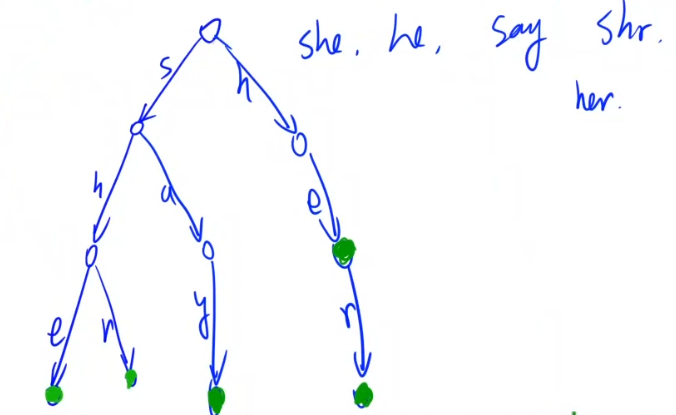 she, he, say shr.
her.
s h
h a e
e r y r